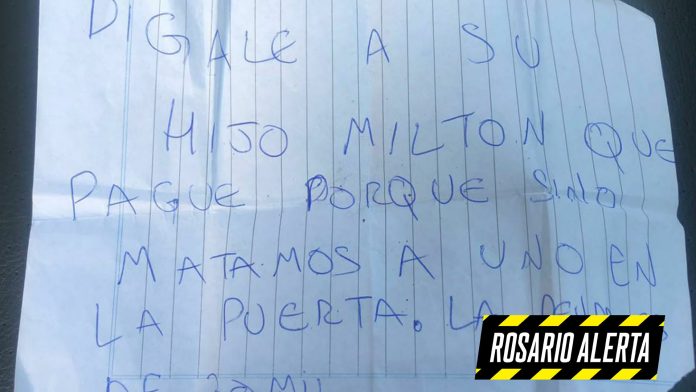 DIGALE A SU
HIJO MILTON QUE
PAGUE PORQUE SINO
MATAMOS A UNO EN
LA PUERTA. LA
DE
ROSARIO ALERTA